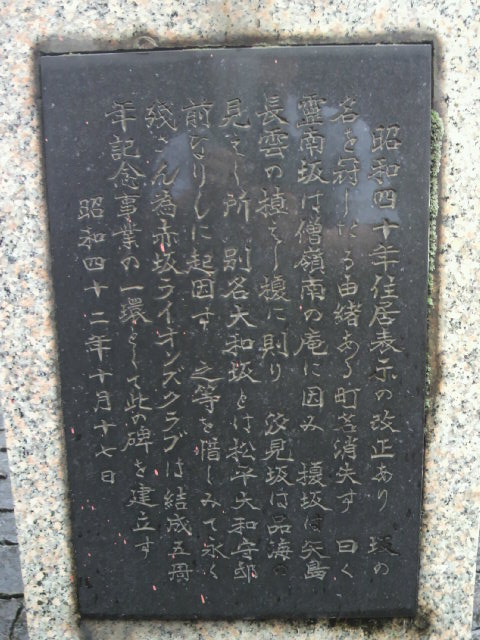 昭和四十年住居表示の改正あり 坂の
名を冠したる由緒ある町を消失す 曰く
霊南坂は僧嶺南の庵に因み 榎坂は矢島
長雲の植えし榎に則り 汐見坂は品海の
見えし所 別名大和坂とは松平大和守邸
前なりしに起因す 之等を惜しみて永く
残さん為赤坂ライオンズクラブは結成五周
年記念事業の一環として此の碑を建立す
昭和四十二年十月十七日